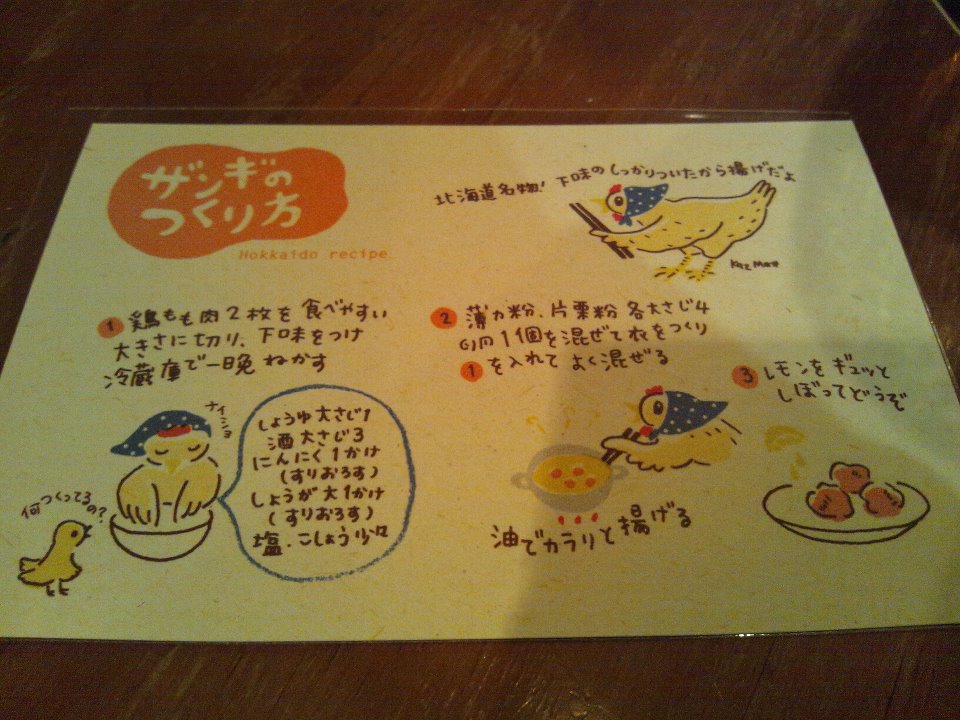 ザンギの
つくり方
Hokkaido recipe
北海道名物! 下味のしっかりついたから揚げだよ
1 鶏もも肉2枚を食べやすい
大きさに切り、下味をつけ
冷蔵庫で一晩ねかす
ナイショ
何つくってるの?
しょうゆ大さじ1
酒大さじ3
にんにく1かけ
(すりおろす)
しょうが大1かけ
(すりおろす)
塩、こしょう少々
2 薄力粉、片栗粉各大さじ4
卵1個を混ぜて衣をつくり
1を入れてよく混ぜる
油でカラリと揚げる
3 レモンをギュッと
しぼってどうぞ